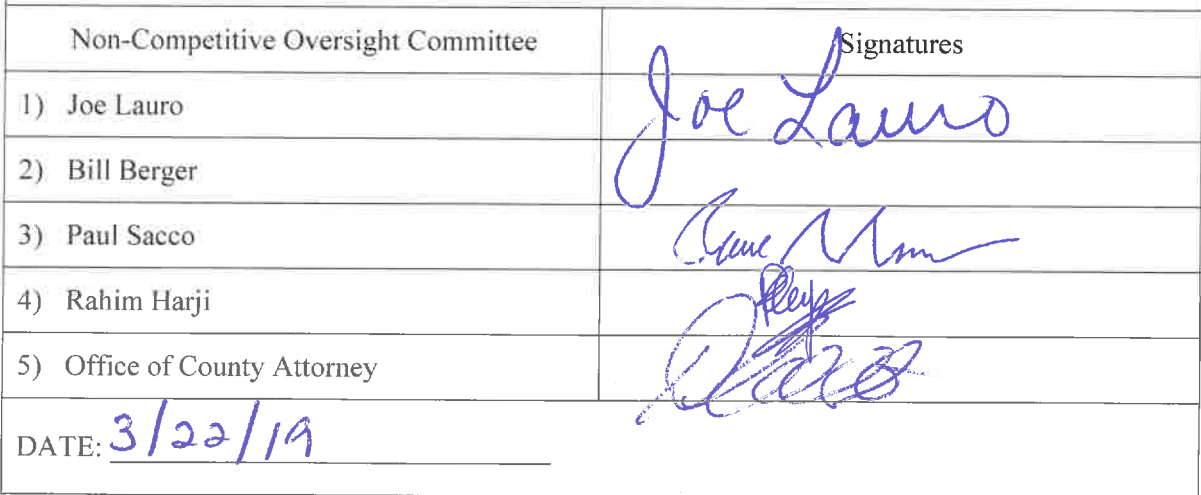 Non-Competitive Oversight Committee Signatures
1) Joe Lauro Joe Lauro
2) Bill Berger
3) Paul Sacco
4) Rahim Harji
5) Office of County Attorney
DATE: 3/22/19